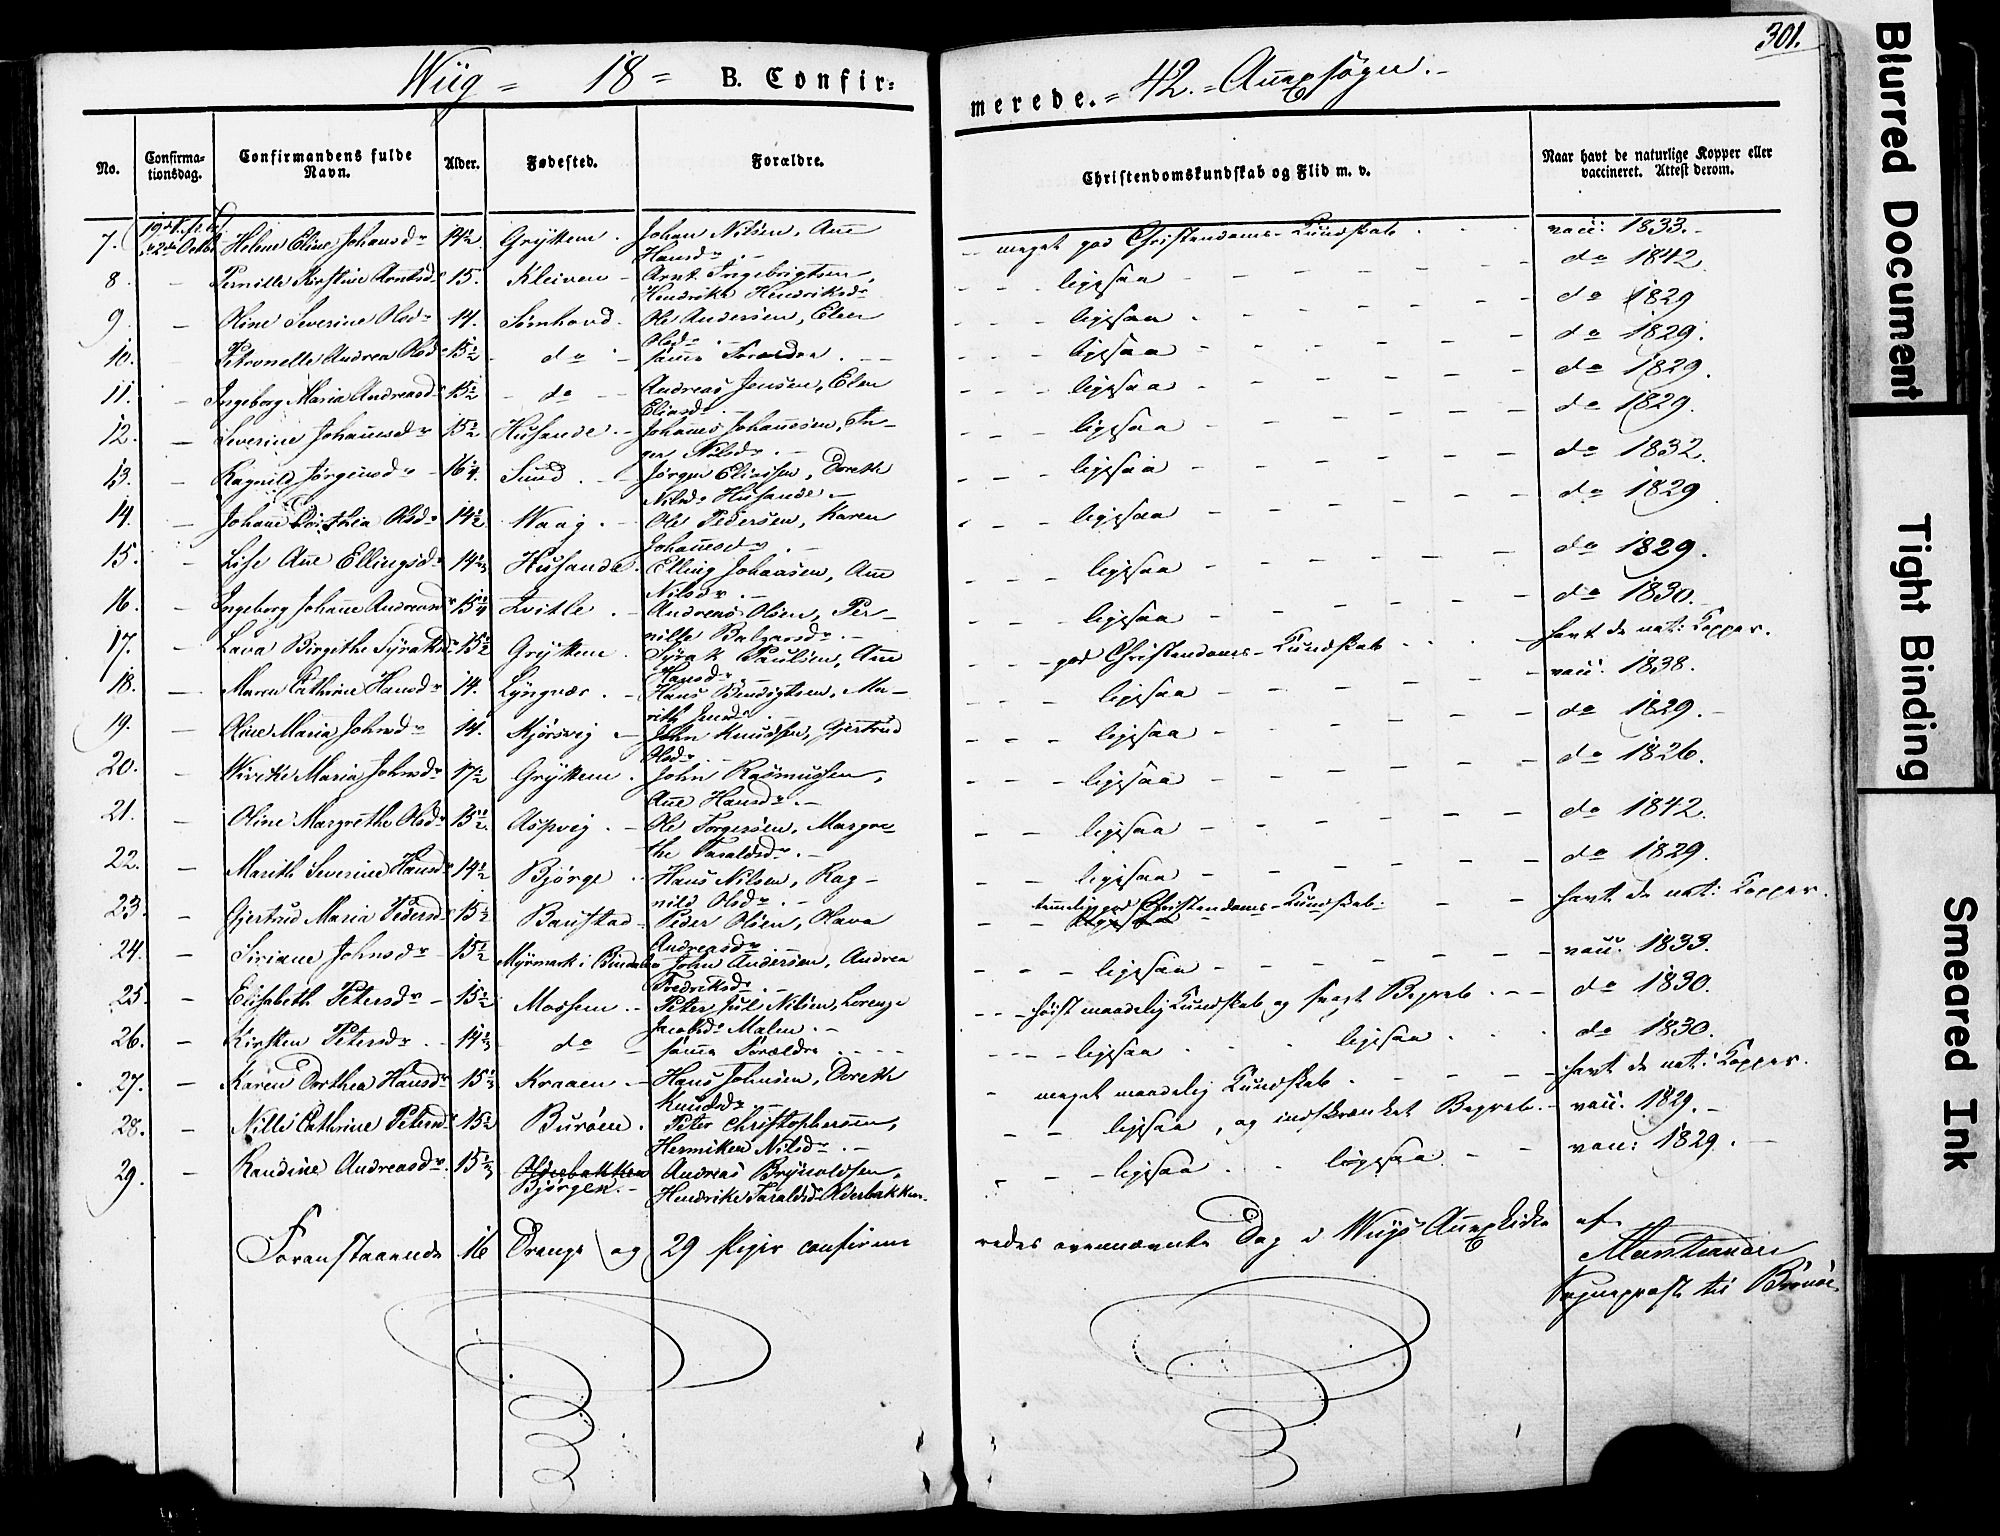 301.
Wiig = 18 = B. Confir:
merede. = 42. = Annexsogn. -
No. Confirma-tionsdag. Confirmandens fulde Navn. Alder. Fødested. Forældre. Christendomskundskab og Flid m. v. Naar havt de naturlige Kopper eller vaccineret. Attest derom.
7. 2den Octbr Helene Eline Johansdr 14½ Gryttem Johan Nilsen, Ane Hansdr - meget god Christendoms-Kundskab vacc: 1833.
8. - Pernille Kirstine Arntsdr 15. Kleiven Arnt Ingebrigtsen, Hendrikke Hendriksdr ligesaa do 1842.
9. - Oline Severine Olsdr 14. Sømhovd Ole Andersen, Elen Olsdr - ligesaa do 1829
10. - Petronelle Andrea Olsdr 15½ do samme Forældre ligesaa do 1829.
11. - Ingeborg Maria Andreasdr 15½ do Andreas Jensen, Elen Eliasdr - ligesaa do 1829.
12. - Severine Johannesdr 15½ Husande Johannes Johannesen, In-ger Nilsdr - ligesaa do 1829.
13. - Ragnild Jørgensdr 16¼ Sund Jørgen Eliassen, Doreth Nilsdr Husande - ligesaa do 1832.
14. - Johanne Dorthea Olsdr 14½ Waag Ole Pedersen, Karen Johannesdr - ligesaa do 1829
15. - Lise Ane Ellingsdr 14⅔ Husande Elling Johansen, Ane Nilsdr - ligesaa do 1829.
16. - Ingeborg Johanne Andreasdr 15¼ Andreas Olsen, Per-nille ligesaa do 1830.
17. - Lava Birgithe Syraksdr 15½ Gryttem Syrak Paulsen, Ane Hansdr - god Christendoms-Kundskab havt de nat: Kopper.
18. - Maren Cathrine Hansdr 14. Lyngvær Hans Bendigtsen, Ma-rith Jensdr - ligesaa vacc: 1838.
19. - Oline Maria Johnsdr 14. Kjørsvig John Knudsen, Gjertrud Olsdr - ligesaa do 1829.
20. - Wivike Maria Johnsdr 17½ Gryttem John Rasmussen, Ane Hansdr - ligesaa do 1826.
21. - Oline Margrethe Olsdr 15½ Aspvig Ole Torgersen, Margre-the Taraldsdr - ligesaa do 1842.
22. - Marith Severine Hansdr 14½ Bjørge Hans Nilsen, Rag-nild Olsdr - ligesaa do 1829.
23. - Gjertrud Maria Pedersdr 15½ Baustad Peder Olsen, Olava Andreasdr temmelig god Christendoms-Kundskab ligesaa havt de nat: Kopper.
24. - Siriane Johnsdr 15½ Myrmark i Bindalen John Andersen, Andrea Fredriksdr - ligesaa vacc: 1833.
25. - Elisabeth Petersdr 15½ Mossem Peter Jul Nilsen, Lorenze Jacobsdr Malen - høist maadelig Kundskab og svagt Begreb do 1830.
26. - Kirsten Petersdr 14⅔ do samme Forældre ligesaa ligesaa do 1830.
27. - Karen Dorthea Hansdr 15⅓ Kraaen Hans Johnsen, Doreth Knudsdr - meget maadelig Kundskab havt de nat: Kopper.
28. - Nille Cathrine Petersdr 15½ Burøen Peter Christophersen, Hermiken Nilsdr - ligesaa, og indskrænket Begreb vacc: 1829.
29. - Randine Andreasdr 15⅓ Olderbakken Bjørgen. - Andreas Brynildsen, Hendrike Taraldsdr Olderbakken. ligesaa ligesaa vacc: 1829.
Foranstaaende 16 Drenge og 29 Piger confirme-redes ovennævnte Dag i Wiigs Annexkirke af
Sognepræst til Brønøe
Blurred Document
Tight Binding
Smeared Ink